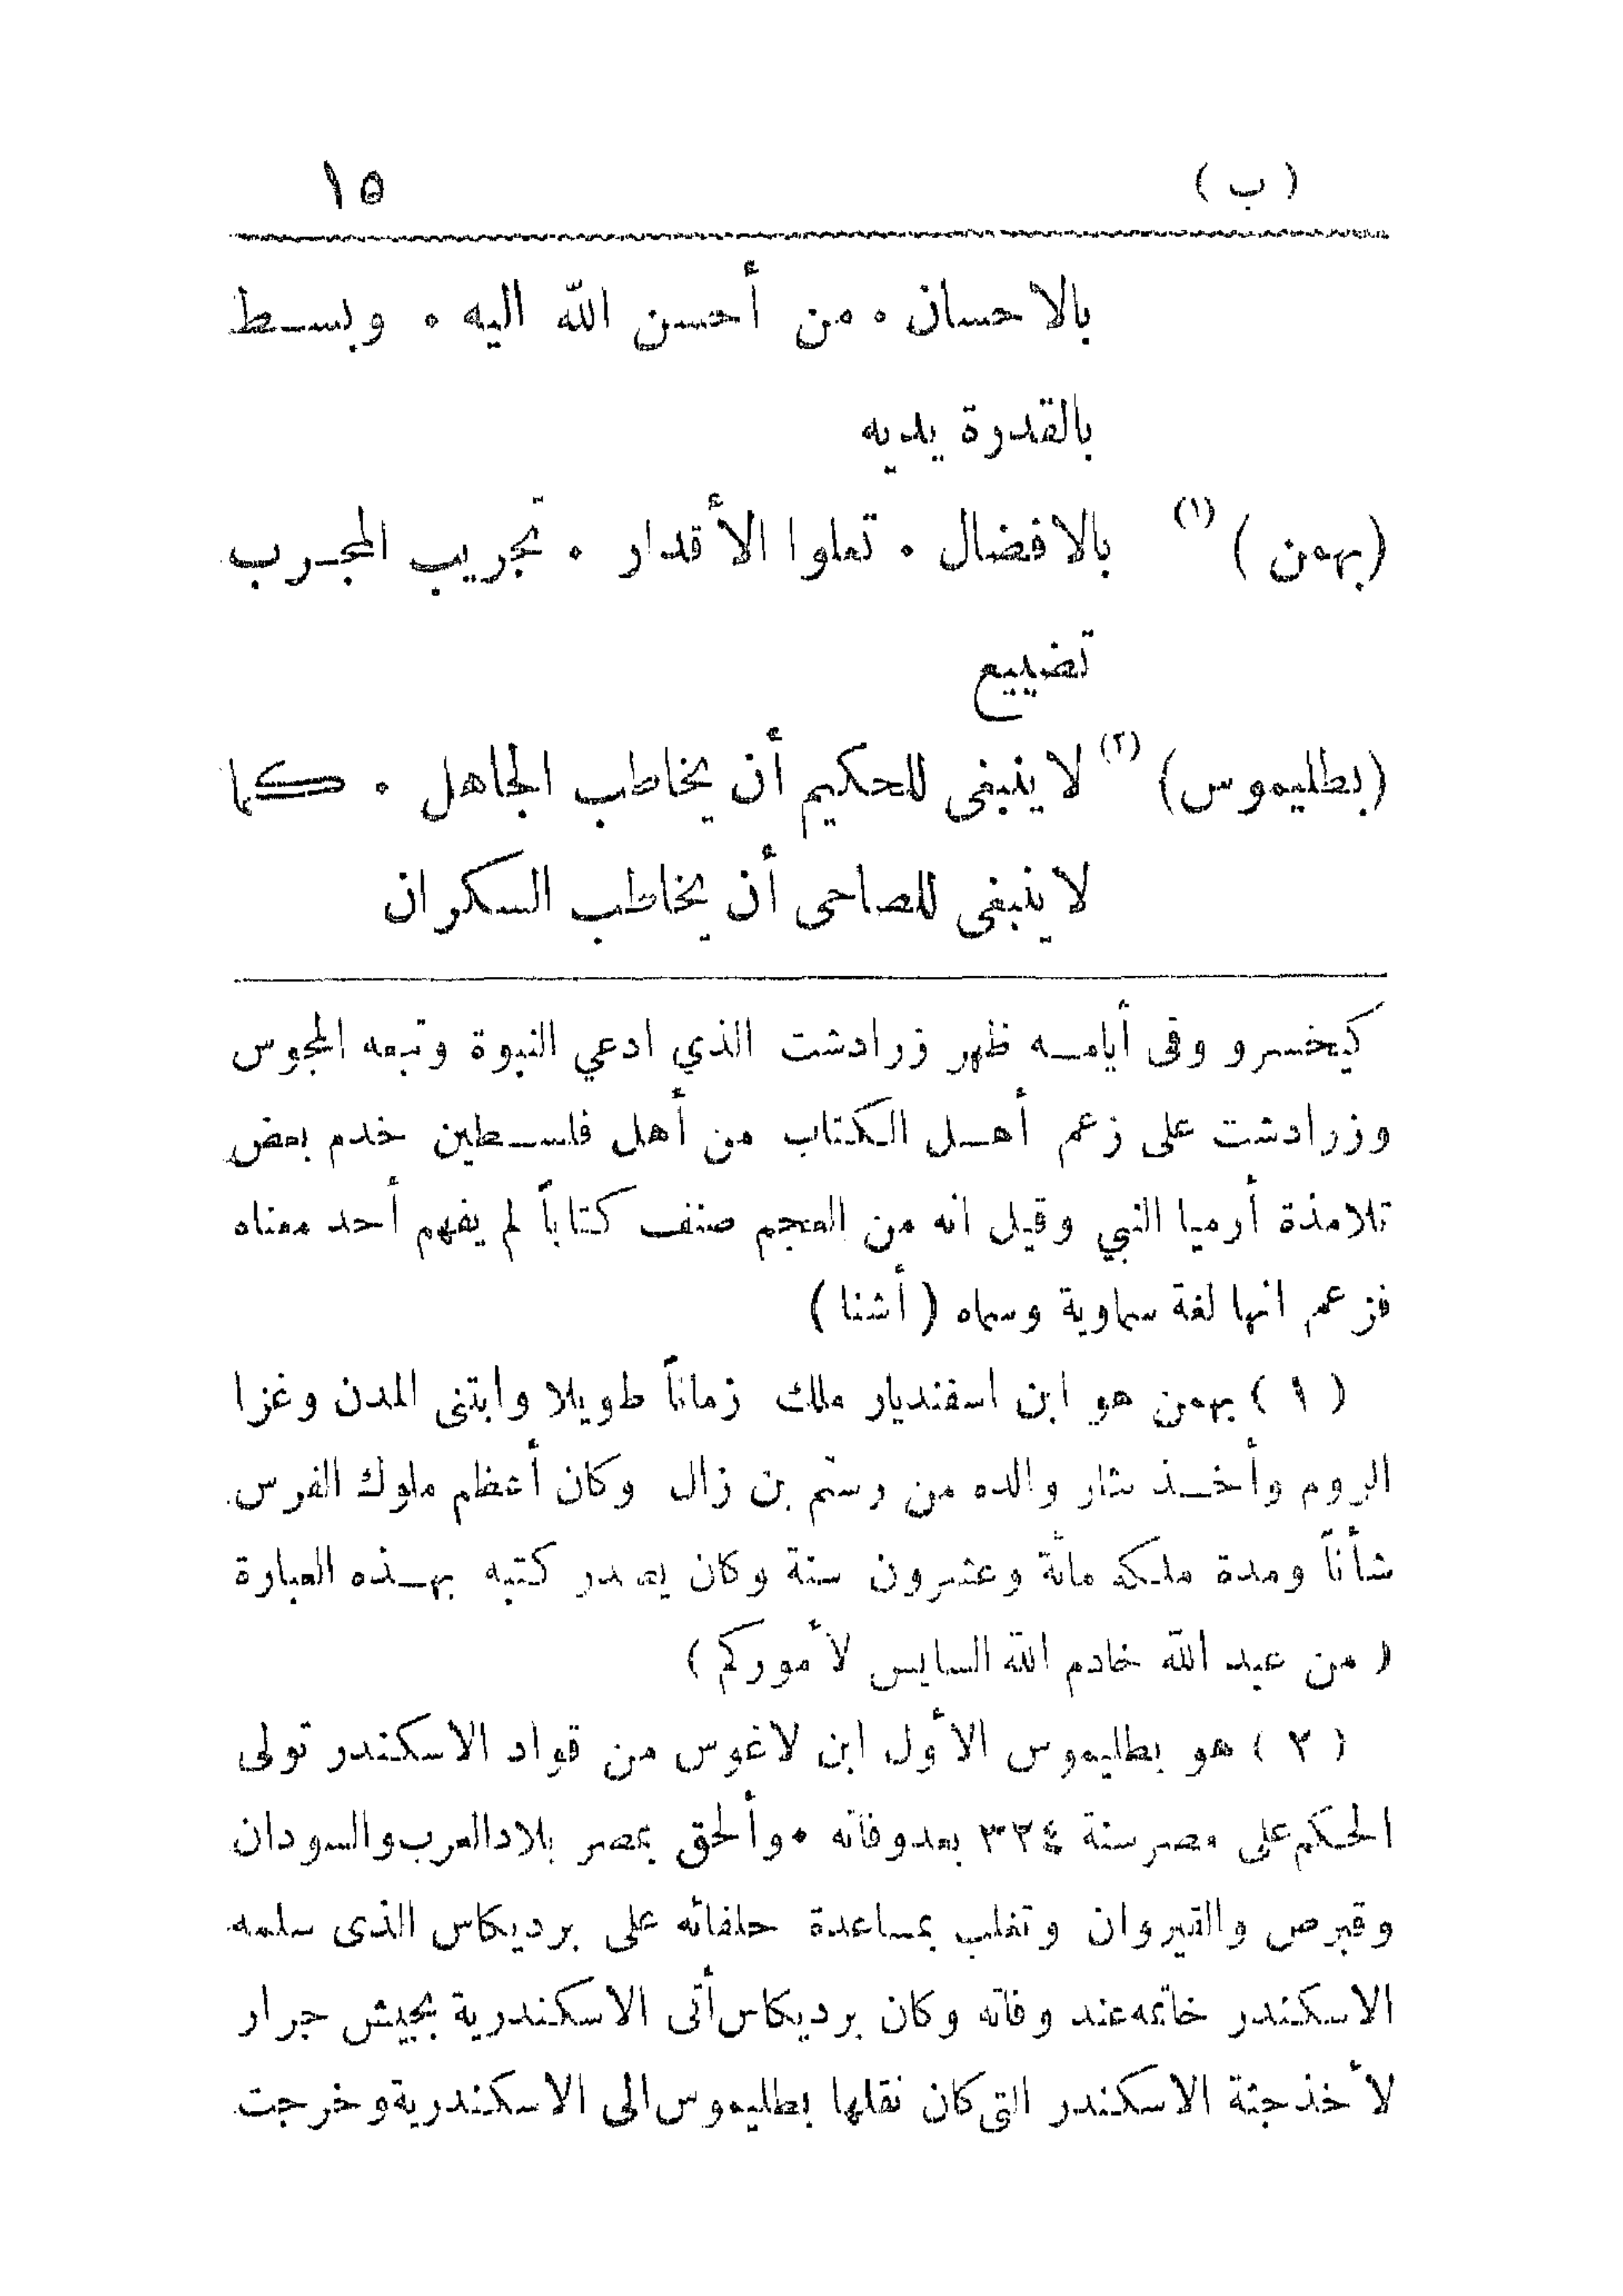 (ب) ١٥
بالاحسان . من أحسن الله اليه . وبسط
بالقدرة يديه
(بهمن) (١) بالافضال . تعلوا الأقدار . تجريب المجرب
تضييع
(بطليموس) (٢) لا ينبغى للحكيم أن يخاطب الجاهل . كما
لا ينبغى للصاحى أن يخاطب السكران
كيخسرو وفى أيامه ظهر زرادشت الذي ادعي النبوة وتبعه المجوس
وزرادشت على زعم أهل الكتاب من أهل فلسطين خدم بعض
تلامذة أرميا النبي وقيل انه من العجم صنف كتاباً لم يفهم أحد معناه
فزعم انها لغة سماوية وسماه (أشنا)
(١) بهمن هو ابن اسفنديار ملك زماناً طويلا وابتنى المدن وغزا
الروم وأخذ بثار والده من رستم بن زال وكان أعظم ملوك الفرس
شأناً ومدة ملكه مائة وعشرون سنة وكان يصدر كتبه بهذه العبارة
(من عبد الله خادم الله السايس لأموركم)
(٢) هو بطليموس الأول ابن لاغوس من قواد الاسكندر تولى
الحكم على مصر سنة ٣٢٤ بعد وفاته . وألحق بمصر بلاد العرب والسودان
وقبرص والقيروان وتغلب بمساعدة حلفائه على برديكاس الذى سلمه
الاسكندر خاتمه عند وفاته وكان برديكاس أتى الاسكندرية بجيش جرار
لأخذ جثة الاسكندر التى كان نقلها بطليموس الى الاسكندرية وخرجت